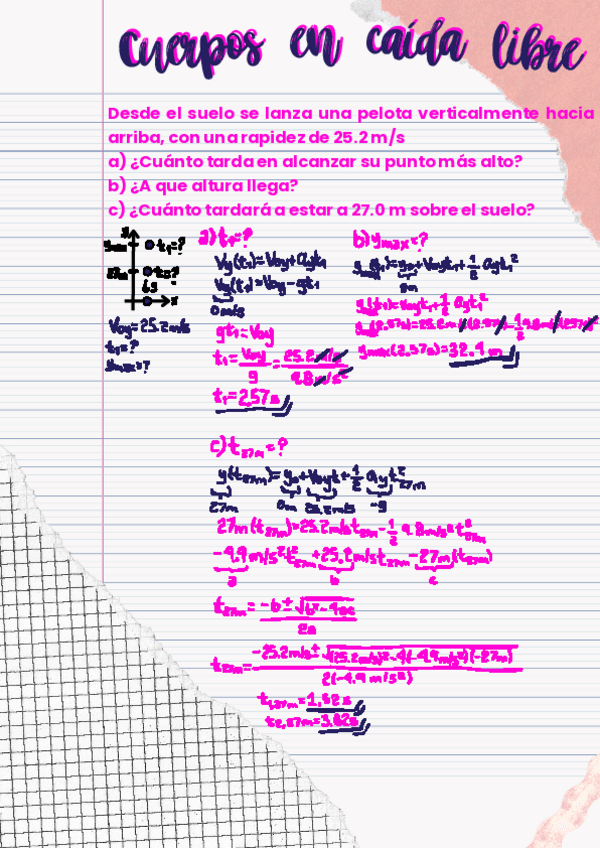 Cuerpos en caída libre
Desde el suelo se lanza una pelota verticalmente hacia
arriba, con una rapidez de 25.2 m/s
a) ¿Cuánto tarda en alcanzar su punto más alto?
b) ¿A que altura llega?
c) ¿Cuánto tardará a estar a 27.0 m sobre el suelo?
y
ymax t₁=?
27m
x
Voy=25.2m/s
t₁=?
ymax=?
a) t₁=?
Vy(t₁)=Voy+ayt₁
Vy(t₁)=Voy-gt₁
0m/s
gt₁=Voy
t₁=Voy/g=25.2m/s/9.8m/s²
t₁=2.57s
b) ymax=?
0m
ymax(2.57s)=32.4m
c) t27m=?
y(t27m)=yo+Voyt+1/2 ayt²27m
27m 0m 25.2m/s -g
27m(t27m)=25.2m/st27m-1/2 9.8m/s²t²27m
-4.9m/s²t²27m+25.2m/st27m-27m(t27m)
a b c
t27m=-b±√b²-4ac
2a
t27m=-25.2m/s±√(25.2m/s)²-4(-4.9m/s²)(-27m)
2(-4.9m/s²)
t1,27m=1.52s
t2,27m=3.62s